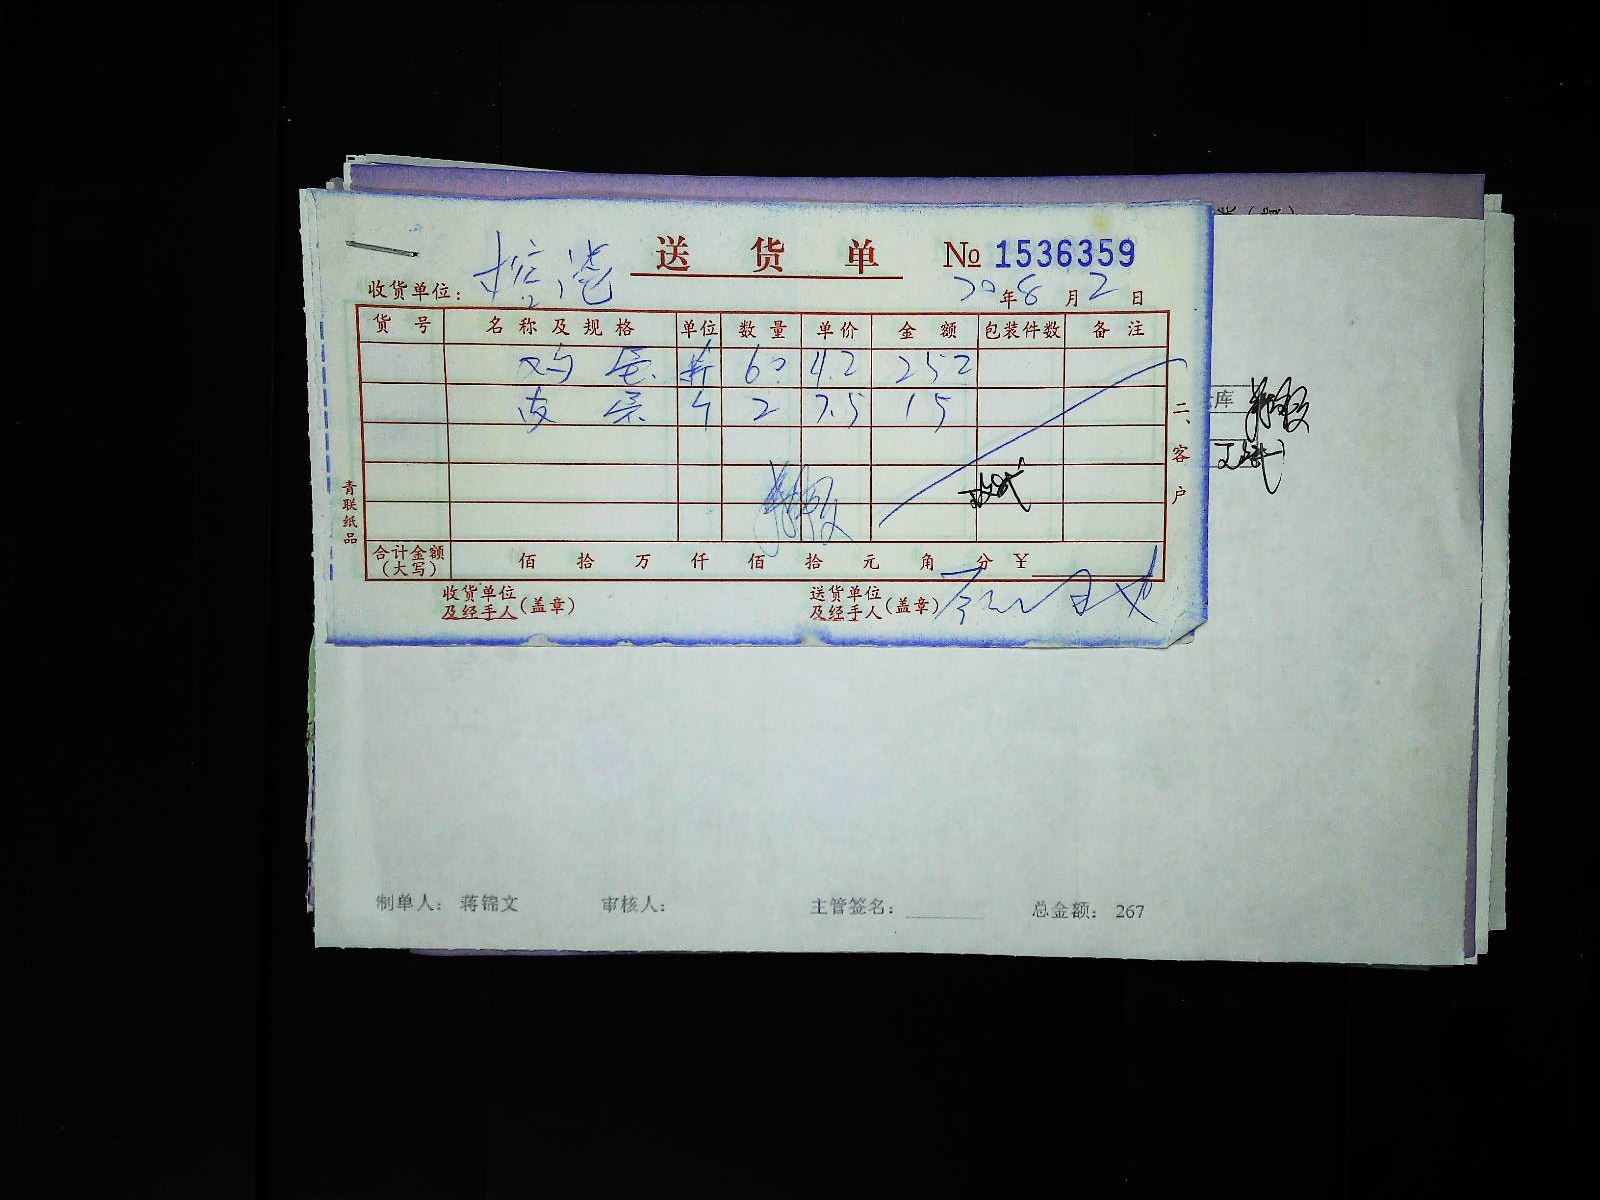 送 货 单 № 1536359
收货单位: 控港 20年8月2日
货 号 名 称 及 规 格 单位 数 量 单价 金 额 包装件数 备 注
鸡 蛋 斤 60 4.2 252
皮 蛋 个 2 7.5 15
二、客户
青联纸品
合计金额(大写) 佰 拾 万 仟 佰 拾 元 角 分 ¥
收货单位及经手人(盖章) 送货单位及经手人(盖章)
库
制单人: 蒋锦文 审核人: 主管签名: 总金额: 267